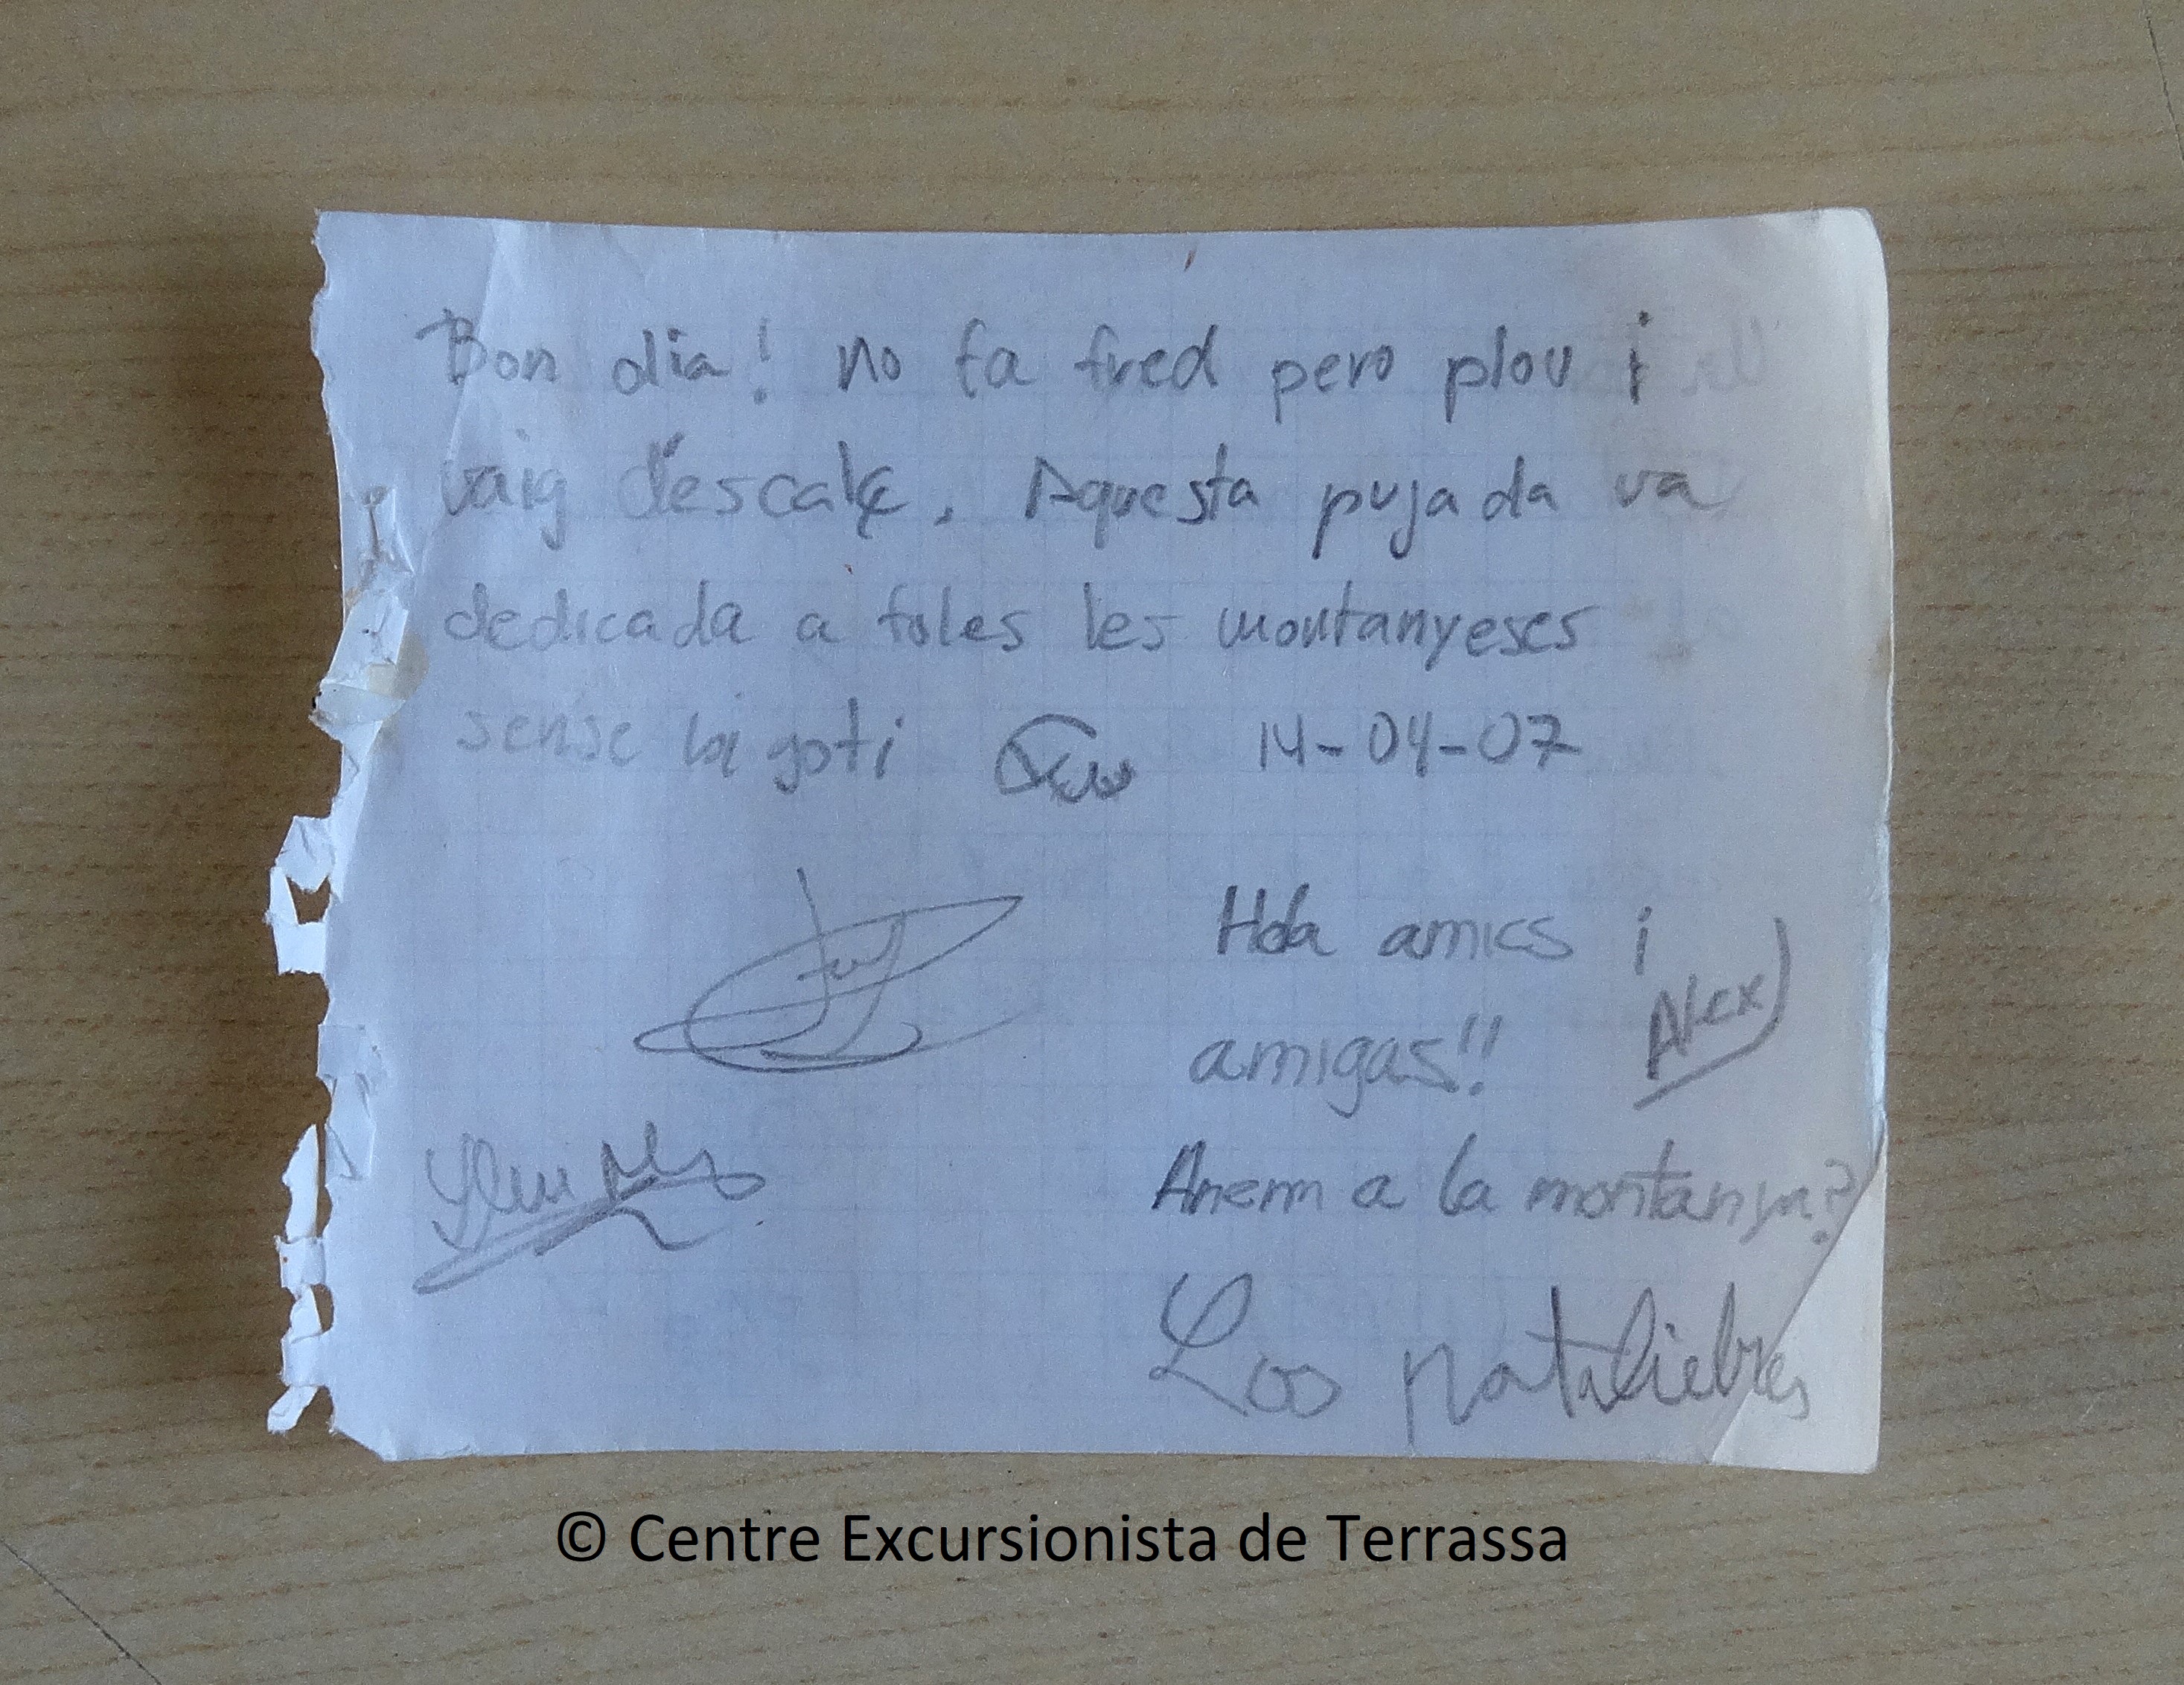 Bon dia! no fa fred pero plou i
vaig descalç. Aquesta pujada va
dedicada a totes les montanyeses
sense bigoti 14-04-07
Hola amics i
amigas!!
Alex
Anem a la montanya?
Los pataliebres
© Centre Excursionista de Terrassa